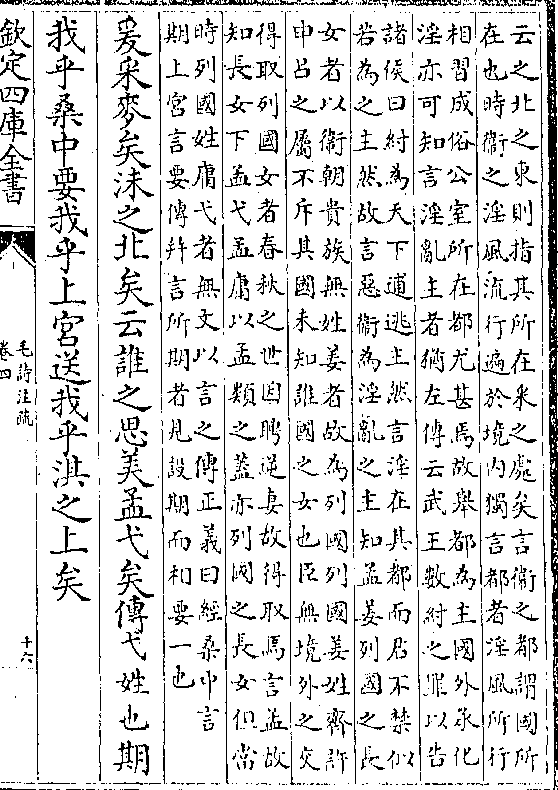 云之北之東則指其所在采之處矣言衛之都謂國所
在也時衛之淫風流行遍於境内獨言都者淫風所行
相習成俗公室所在都尤甚焉故舉都為主國外承化
淫亦可知言淫亂主者猶左傳云武王數紂之罪以告
諸侯曰紂為天下逋逃主然言淫在其都而君不禁似
若為之主然故言惡衛為淫亂之主知孟姜列國之長
女者以衛朝貴族無姓姜者故為列國列國姜姓齊許
申吕之屬不斥其國未知誰國之女也臣無境外之交
得取列國女者春秋之世因聘逆妻故得取焉言孟故
知長女下孟弋孟庸以孟類之蓋亦列國之長女但當
時列國姓庸弋者無文以言之傳正義曰經桑中言
期上宮言要傳幷言所期者見設期而和要一也
爰采麥矣沬之北矣云誰之思美孟弋矣傳弋姓也期
我乎桑中要我乎上宮送我乎淇之上矣
欽定四庫全書
毛詩注疏
卷四
十六